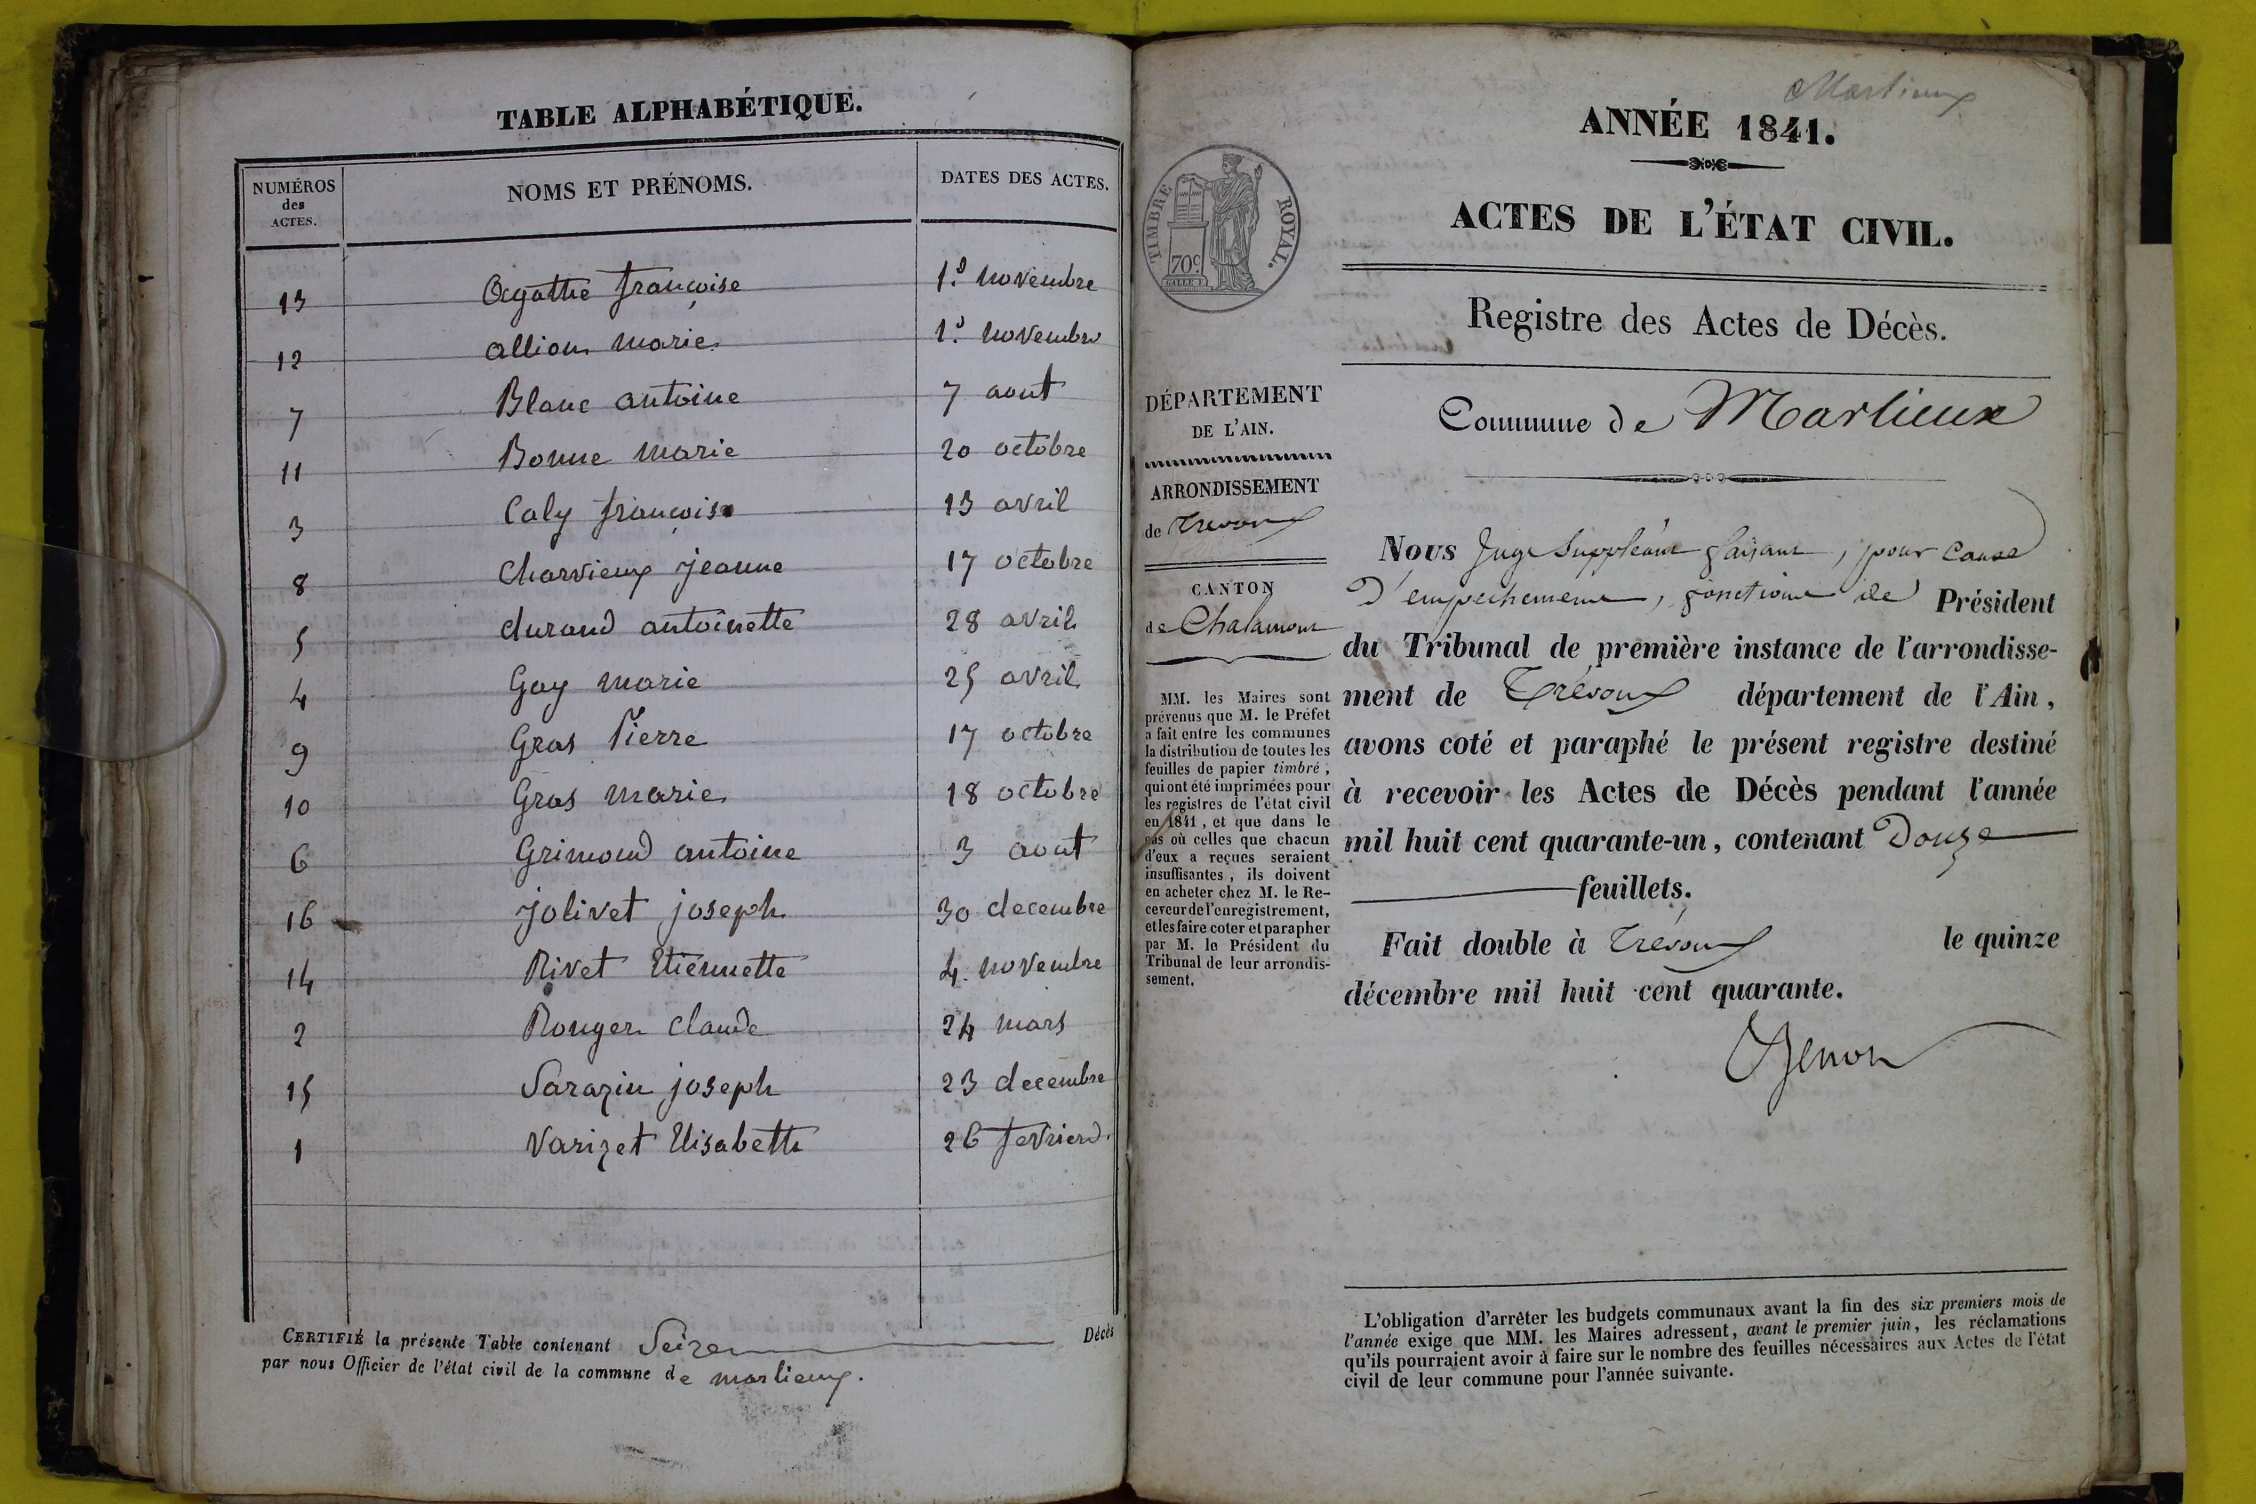 TABLE ALPHABÉTIQUE.
NUMÉROS
des
ACTES.
NOMS ET PRÉNOMS.
DATES DES ACTES.
13 Agathe françoise 1.er novembre
12 allion marie 1.er novembre
7 Blanc antoine 7 aout
11 Bonne marie 20 octobre
3 Caly françoise 13 avril
8 Charvieux jeanne 17 octobre
5 durand antoinette 28 avril
4 Gay marie 25 avril
9 Gras Pierre 17 octobre
10 Gras marie 18 octobre
6 Grimond antoine 3 aout
16 jolivet joseph 30 decembre
14 Rivet Etiennette 4 novembre
2 Rouger claude 24 mars
15 Sarazin joseph 23 decembre
1 Varizet Elisabeth 26 fevrier
CERTIFIÉ la présente Table contenant Seize Décès
par nous Officier de l'état civil de la commune de marlieux.
Marlieux
ANNÉE 1841.
ACTES DE L'ÉTAT CIVIL.
TIMBRE ROYAL.
70c
Registre des Actes de Décès.
Commune de Marlieux
DÉPARTEMENT
DE L'AIN.
ARRONDISSEMENT
de Trevoux
CANTON
de Chalamont
MM. les Maires sont
prévenus que M. le Préfet
a fait entre les communes
la distribution de toutes les
feuilles de papier timbré,
qui ont été imprimées pour
les registres de l'état civil
en 1841, et que dans le
cas où celles que chacun
d'eux a reçues seraient
insuffisantes, ils doivent
en acheter chez M. le Re-
ceveur de l'enregistrement,
et les faire coter et parapher
par M. le Président du
Tribunal de leur arrondis-
sement.
Nous Juge Suppléant faisant, pour cause
d'empechement, fonctions de Président
du Tribunal de première instance de l'arrondisse-
ment de Trévoux département de l'Ain,
avons coté et paraphé le présent registre destiné
à recevoir les Actes de Décès pendant l'année
mil huit cent quarante-un, contenant Douze
feuillets.
Fait double à Trévoux le quinze
décembre mil huit cent quarante.
L'obligation d'arrêter les budgets communaux avant la fin des six premiers mois de
l'année exige que MM. les Maires adressent, avant le premier juin, les réclamations
qu'ils pourraient avoir à faire sur le nombre des feuilles nécessaires aux Actes de l'état
civil de leur commune pour l'année suivante.